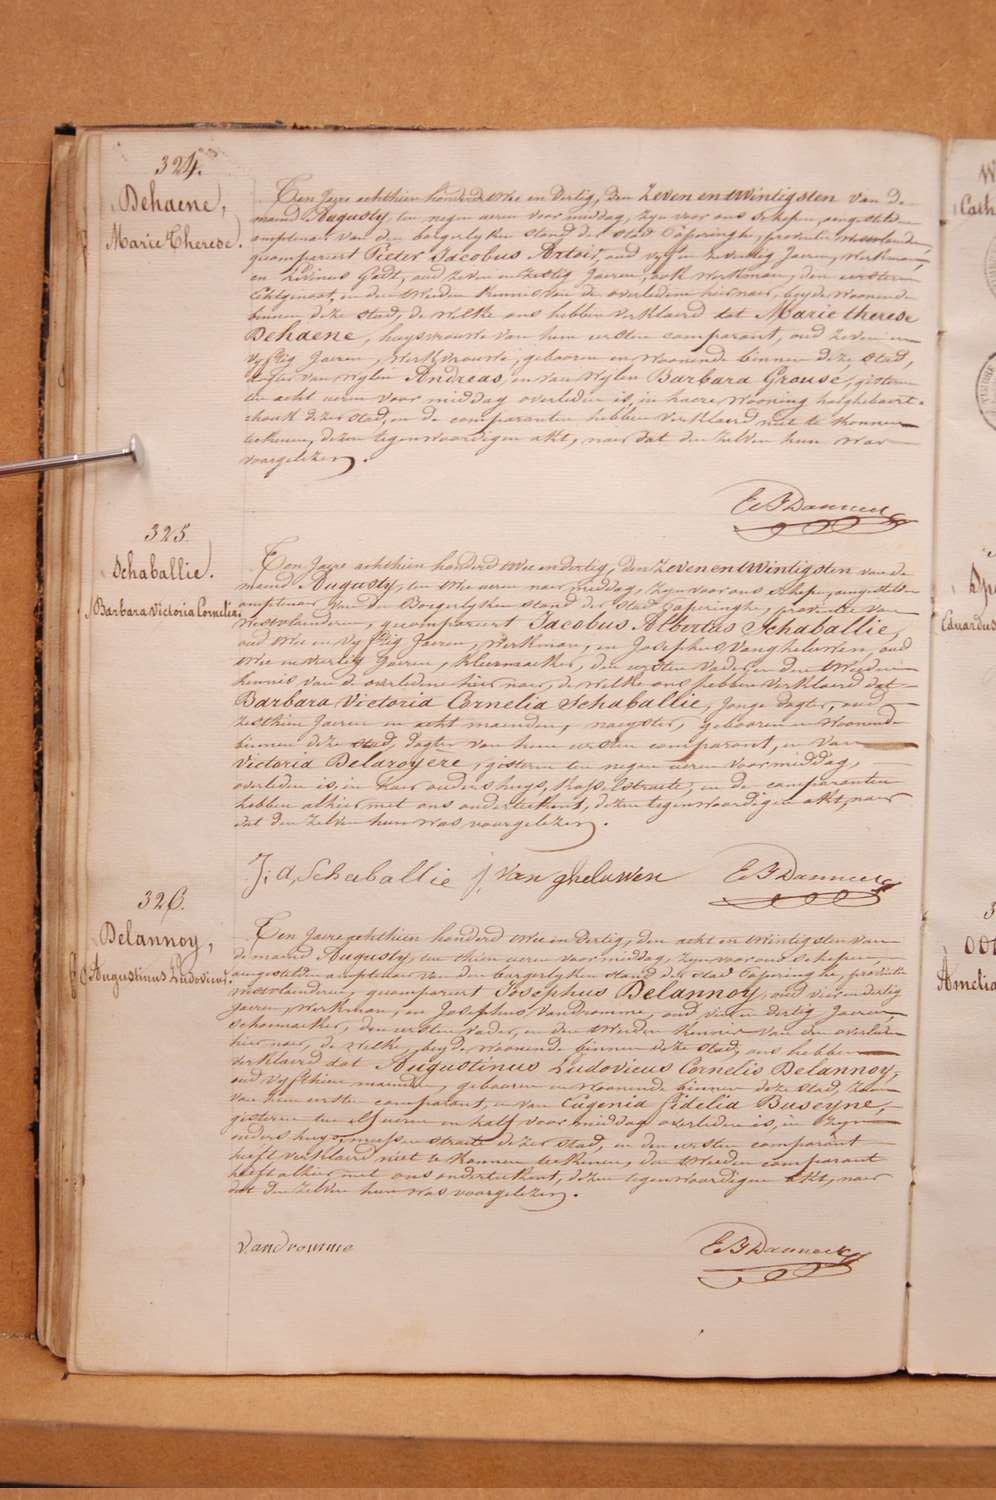 324.
Dehaene,
Marie Therese.
Ten Jaere achthien honderd twee en dertig, den zeven en twintigsten van de
maend Augusty, ten negen ueren voor middag, zyn voor ons Schepen, aengestelden
amptenaer van den borgerlyken stand der stad Poperinghe, provintie westvlanderen,
gecompareert Pieter Jacobus oud vyf en zeventig Jaeren, werkman,
en Livinus Godt, oud zeven en zestig Jaeren, ook werkman, den eersten
Echtgenoot, en den tweeden kennis van de overledene hier naer, beyde woonende
binnen deze stad, de welke ons hebben verklaerd dat Marie therese
Dehaene, huysvrouwe van hem eersten comparant, oud zeven en
vyftig Jaeren, werkvrouwe, gebooren en woonende binnen deze stad,
dogter van wylen Andreas, en van wylen Barbara Grouse, gisteren
ten acht ueren voor middag overleden is, in haere wooning
hoek dezer stad, en de comparanten hebben verklaerd niet te konnen
teekenen, dezen tegenwoordigen akt, naer dat den zelven hun was
voorgelezen.
325.
Schaballie.
Barbara Victoria Cornelia.
Ten Jaere achthien honderd twee en dertig, den zeven en twintigsten van de
maend Augusty, ten twee ueren naer middag, zyn voor ons Schepen, aengestelden
amptenaer van den Borgerlyken stand der stad Poperinghe, provintie van
westvlanderen, gecompareert Jacobus Albertus Schaballie,
oud twee en vyftig Jaeren, werkman, en Josephus Vangheluwen, oud
twee en veertig Jaeren, kleermaeker, den eersten vader en den tweeden
kennis van de overledene hier naer, de welke ons hebben verklaerd dat
Barbara Victoria Cornelia Schaballie, Jonge dogter, oud
zesthien Jaeren en acht maenden, naeyster, gebooren en woonende
binnen deze stad, dogter van hem eersten comparant, en van
Victoria Delaroyère, gisteren ten negen ueren voormiddag,
overleden is, in haer ouders huys, en de comparanten
hebben alhier met ons onderteekent, dezen tegenwoordigen akt, naer
dat den zelven hun was voorgelezen.
J: A, Schaballie j, Van gheluwen
326.
Delannoy,
Augustinus Ludovicus.
Ten Jaere achthien honderd twee en dertig, den acht en twintigsten van
de maend Augusty, ten thien ueren voor middag, zyn voor ons Schepen,
aengestelden amptenaer van den borgerlyken stand der stad Poperinghe, provintie
westvlanderen, gecompareert Josephus Delannoy, oud vier en dertig
Jaeren, werkman, en Josephus Vandromme, oud vier en dertig Jaeren,
schoenmaeker, den eersten vader, en den tweeden kennis van den overleden
hier naer, de welke, beyde woonende binnen deze stad, ons hebben
verklaerd dat Augustinus Ludovicus Cornelis Delannoy,
oud vyfthien maenden, gebooren en woonende binnen deze stad, zoon
van hem eersten comparant, en van Eugenia fidelia Buseyne,
gisteren ten elf ueren en half voor middag overleden is, in zyn
ouders huys, straete dezer stad, en den eersten comparant
heeft verklaerd niet te konnen teekenen, den tweeden comparant
heeft alhier met ons onderteekent, dezen tegenwoordigen akt, naer
dat den zelven hun was voorgelezen.
Vandromme